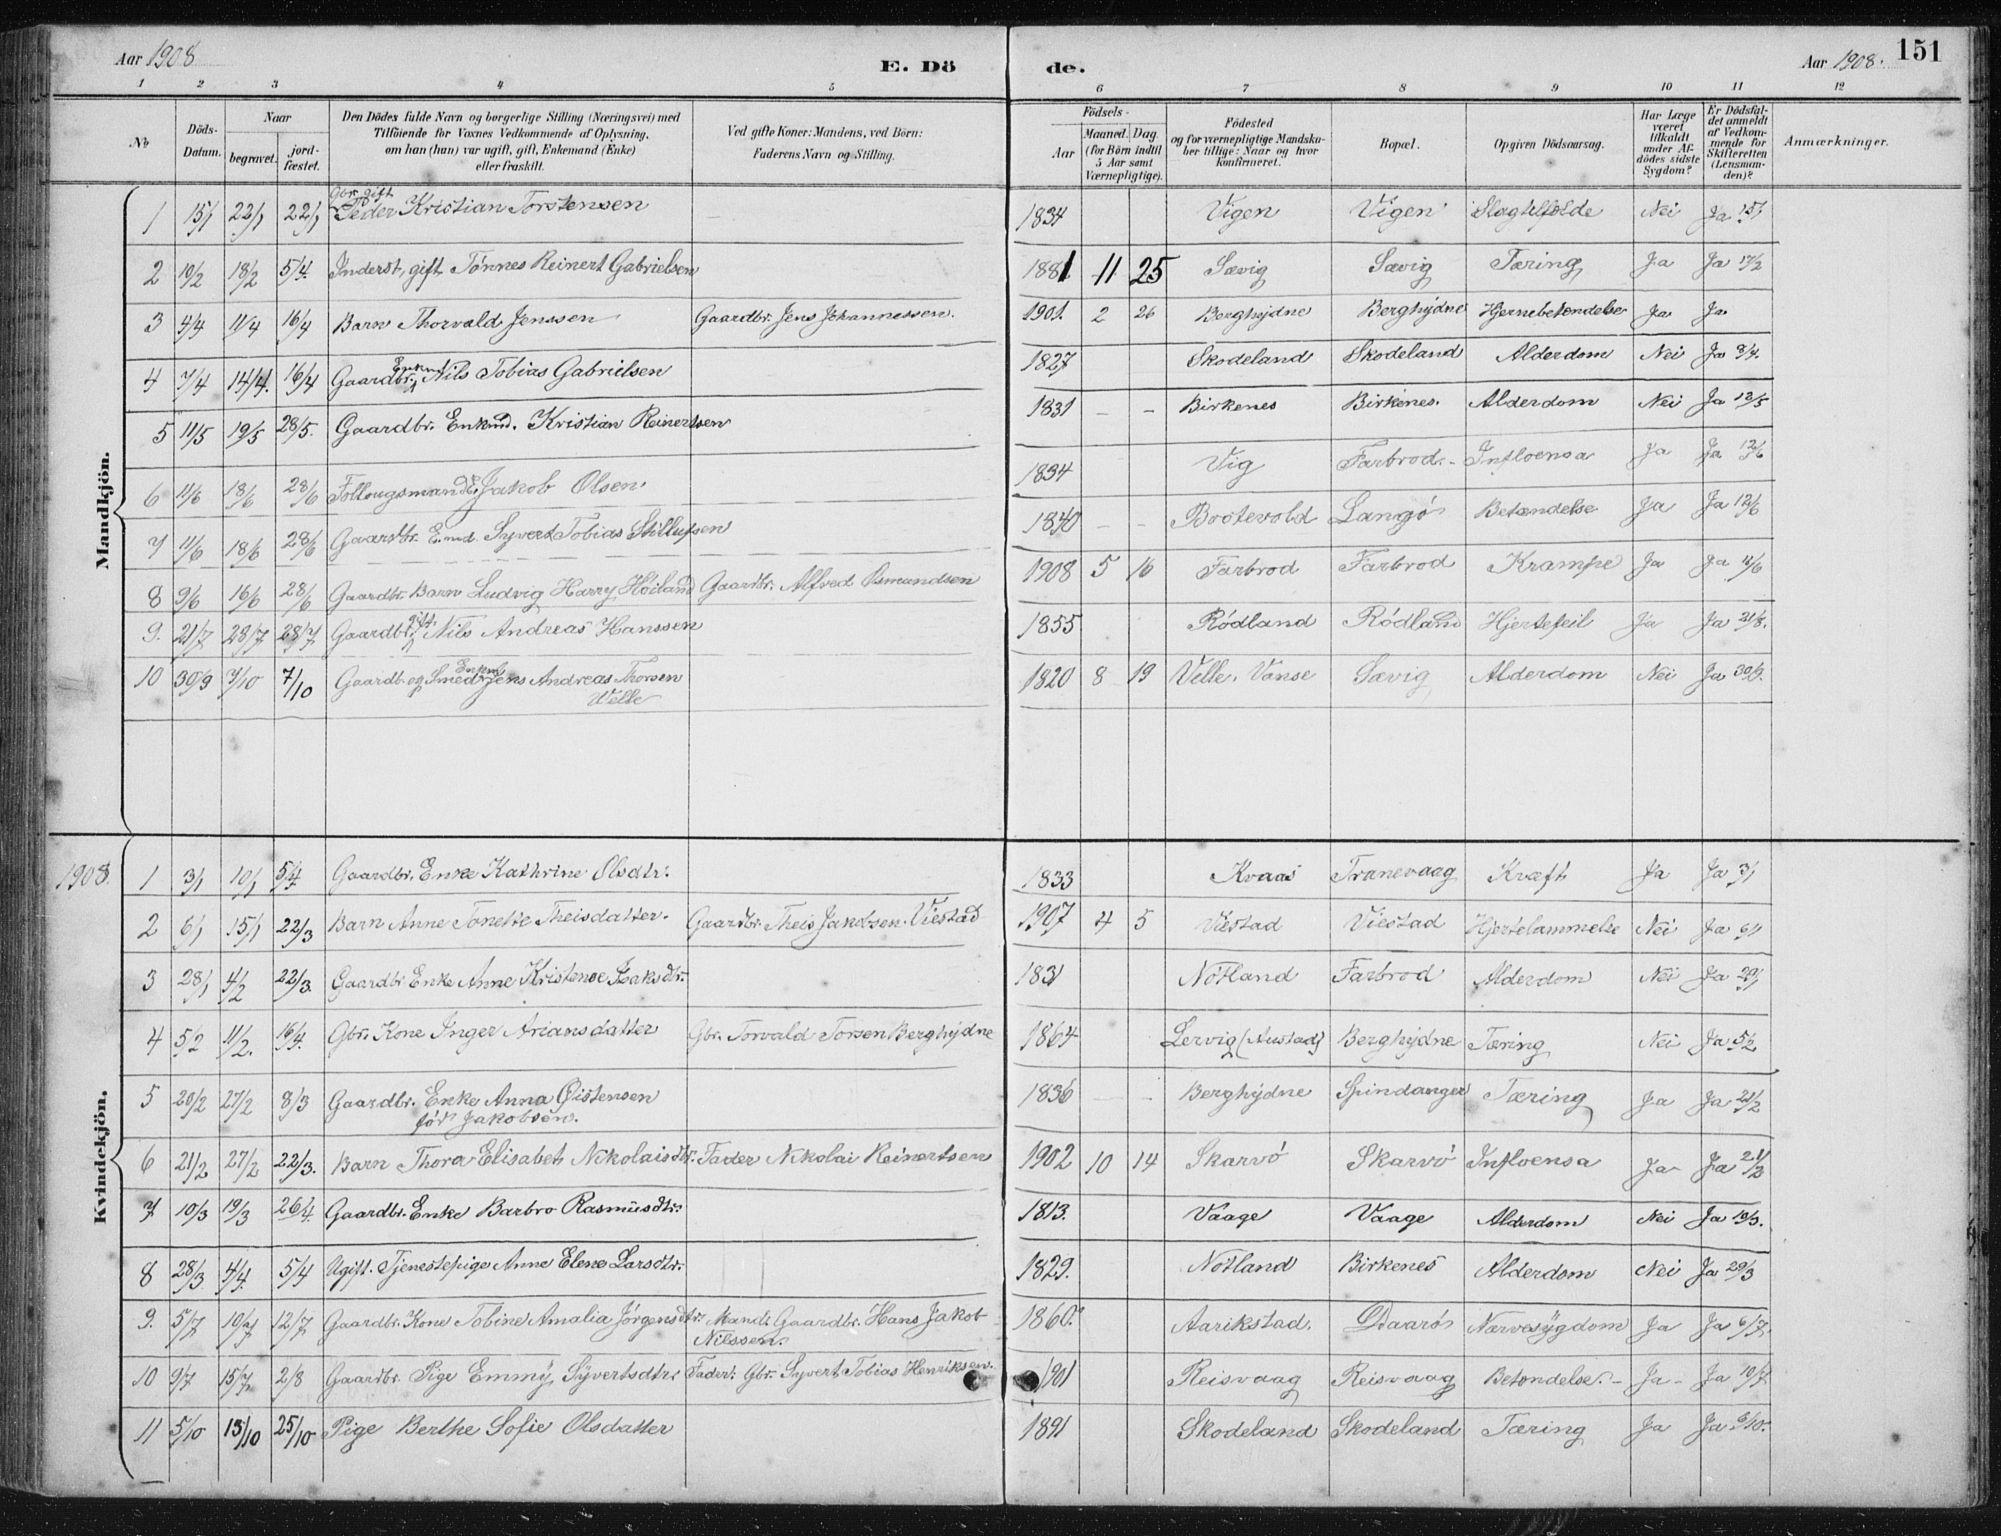 Aar 1908
E. Dö
de.
Aar 1908.
151
1 2 3 4 5 6 7 8 9 10 11 12
No
Döds-Datum.
Naar
begravet.
jord-fæstet.
Den Dödes fulde Navn og borgerlige Stilling (Næringsvei) med
Tilföiende for Voxnes Vedkommende af Oplysning,
om han (hun) var ugift, gift, Enkemand (Enke)
eller fraskilt.
Ved gifte Koner: Mandens, ved Börn:
Faderens Navn og Stilling.
Födsels-
Aar
Maaned. Dag.
(for Börn indtil
5 Aar samt
Værnepligtige).
Födested
og for værnepligtige Mandska-
ber tillige: Naar og hvor
konfirmeret.
Bopæl.
Opgiven Dödsaarsag.
Har Læge
været
tilkaldt
under Af-
dödes sidste
Sygdom?
Er Dödsfal-
det anmeldt
af Vedkom-
mende for
Skifteretten
(Lensman-
den)?
Anmærkninger.
Mandkjön.
1 15/1 22/1 22/1 Gbr. gift Peder Kristian Torstensen 1834 Vigen Vigen Slagtilfælde Nei Ja 15/1
2 10/2 18/2 5/4. Inderst, gift Tönnes Reinert Gabrielsen 1881 11 25 Sævig Sævig Tæring Ja Ja 17/2
3 4/4 11/4 16/4 Barn Thorvald Jenssen Gaardbr. Jens Johannessen. 1901. 2 26 Berghýdne Berghýdne Hjernebetændelse Ja Ja
4 7/4 14/4. 16/4 Gaardbr. Enkm. Nils Tobias Gabrielsen 1827 Skodeland Skodeland Alderdom Nei Ja 8/4.
5 11/5 19/5 28/5. Gaardbr. Enkmd. Kristian Reinertsen 1831 - - Birkenes Birkenes. Alderdom Nei Ja 12/5
6 11/6 18/6 28/6 Jakob Olsen 1834 Vig Farbrod. - Influensa Ja Ja 12/6
7 11/6 18/6 28/6 Gaardbr. E.md. Syvert Tobias 1840 - - Langö Betændelse Ja Ja 12/6
8 9/6 16/6 28/6 Gaardbr. Barn Ludvig Harry Höiland Gaardbr. Alfved Osmundsen 1908 5 16 Farbrod Farbrod Krampe Ja Ja 11/6
9. 21/7 28/7 28/7 Gaardbr. gift Nils Andreas Hanssen 1855 Rödland Rödland Hjertefeil Ja Ja 21/8.
10 30/9 7/10 7/10 Gaardb. og Smed Enkm. Jens Andreas Thorsen
Velle 1820 8 19 Velle. Vanse Sævig Alderdom Nei Ja 30/9.
1908.
Kvindekjön.
1 3/1 10/1 5/4 Gaardbr. Enke Kathrine Olsdtr. 1833 Kvaas Tranevaag Kræft Ja Ja 3/1
2 6/1 15/1 22/3 Barn Anne Tonette Theisdatter. Gaardbr. Theis Jakobsen. Viestad 1907 4 5 Viestad Viestad Hjertelammelse Nei Ja 6/1
3 28/1 4/2 22/3. Gaardbr Enke Anne Kristense Isaksdtr. 1831 Nötland Farbrod Alderdom Nei Ja 29/1
4 5/2 11/2. 16/4. Gbr. Kone Inger Ariansdatter Gbr. Torvald Torsen Berghýdne 1864 Lervig (Austad) Berghýdne Tæring Nei Ja 5/2
5 20/2 27/2 8/3 Gaardbr. Enke Anna Öistensen
för Jakobsen. 1836 - - Berghýdne Spindanger Tæring Ja Ja 21/2
6 21/2 27/2 22/3. Barn Thora Elisabet Nikolaisdtr. Fader Nikolai Reinertsen 1902 10 14 Skarvö Skarvö Influensa Ja Ja 21/2
7 10/3 19/3 26/4. Gaardbr. Enke Barbro Rasmusdtr. 1813. Vaage Vaage Alderdom Nei Ja 10/3.
8 28/3 4/4. 5/4 Ugift. Tjenestepige Anne Elene Larsdtr. 1829. Nötland Birkenes Alderdom Nei Ja 29/3
9. 5/7 10/7 12/7 Gaardbr. Kone Tobine Amalia Jörgensdtr. Mand: Gaardbr. Hans Jakob
Nilssen. 1860. Aarikstad. Daarö Nervesýgdom Ja Ja 6/7.
10 9/7 15/7 2/8 Gaardbr. Pige Emmý Sývertsdtr. Fader: Gbr. Syvert Tobias Henriksen. 1901 Reisvaag Reisvaag Betændelse. - Ja - Ja 10/7
11 5/10 13/10 25/10 Pige Berthe Sofie Olsdatter 1891 Skodeland Skodeland Tæring Ja Ja 6/10.